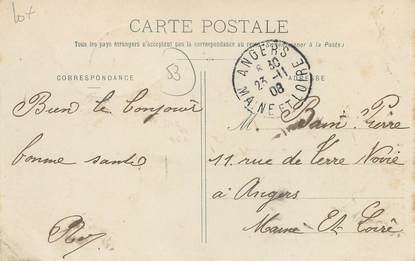 lot
CARTE POSTALE
Tous les pays étrangers n'acceptent pas la correspondance au recto (Se renseigner à la Poste)
53
ANGERS
23-11
08
MAINE ET LOIRE
CORRESPONDANCE
ADRESSE
Bien le bonjour
bonne santé
M. Pierre
11 rue de Terre Noire
à Angers
Maine Et Loire